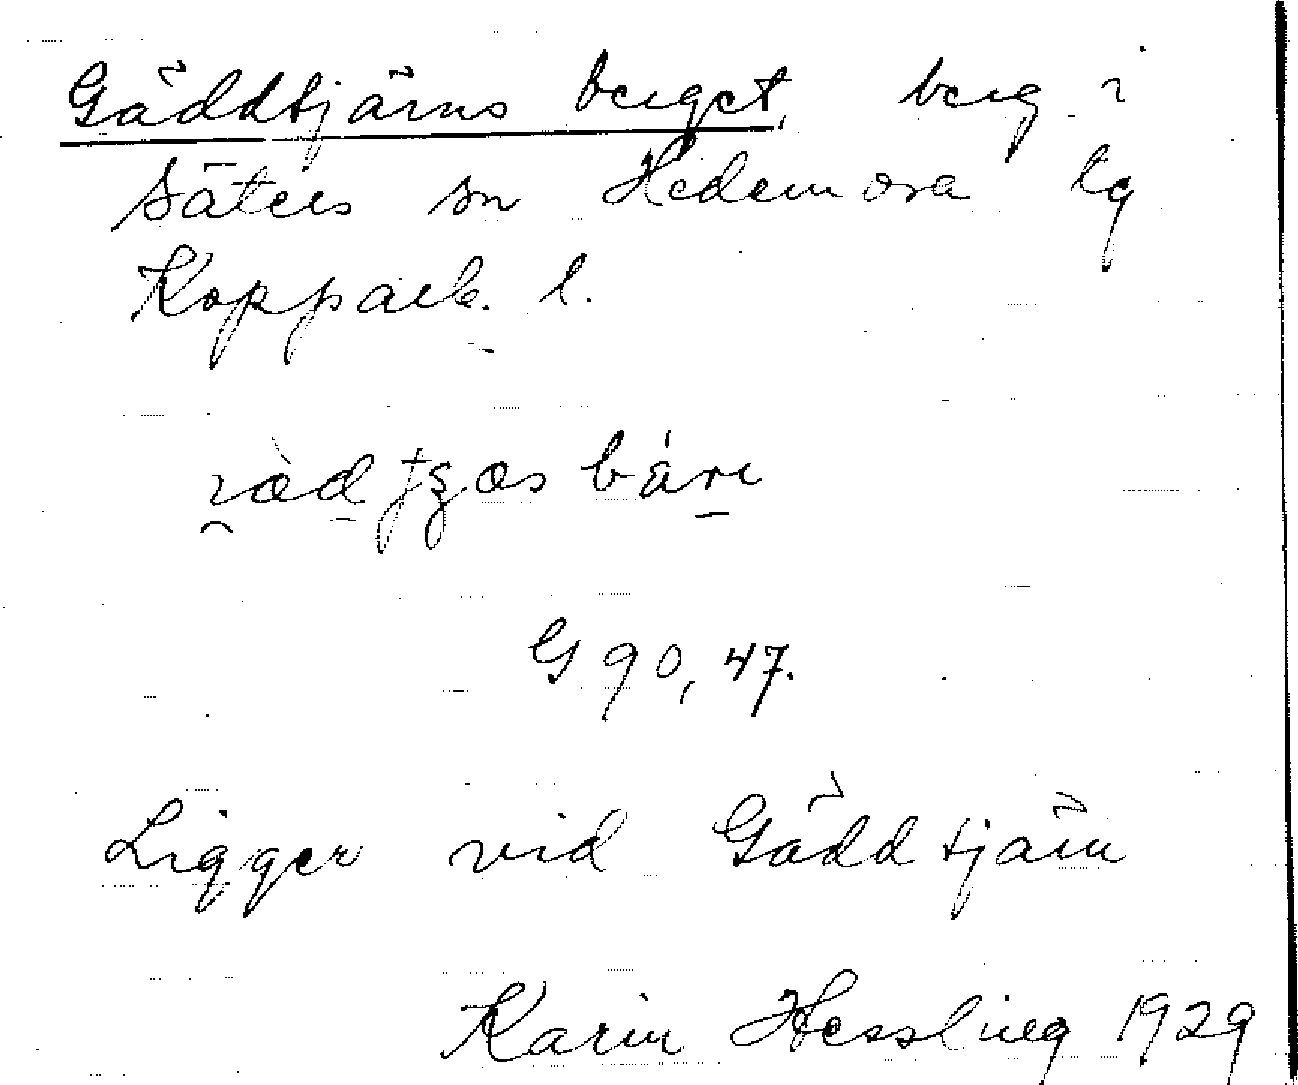 Gäddtjärns berget, berg i
Säters sn Hedemora tg
Kopparb. l.
G 90, 47.
Ligger vid Gäddtjärn
Karin Hessling 1929